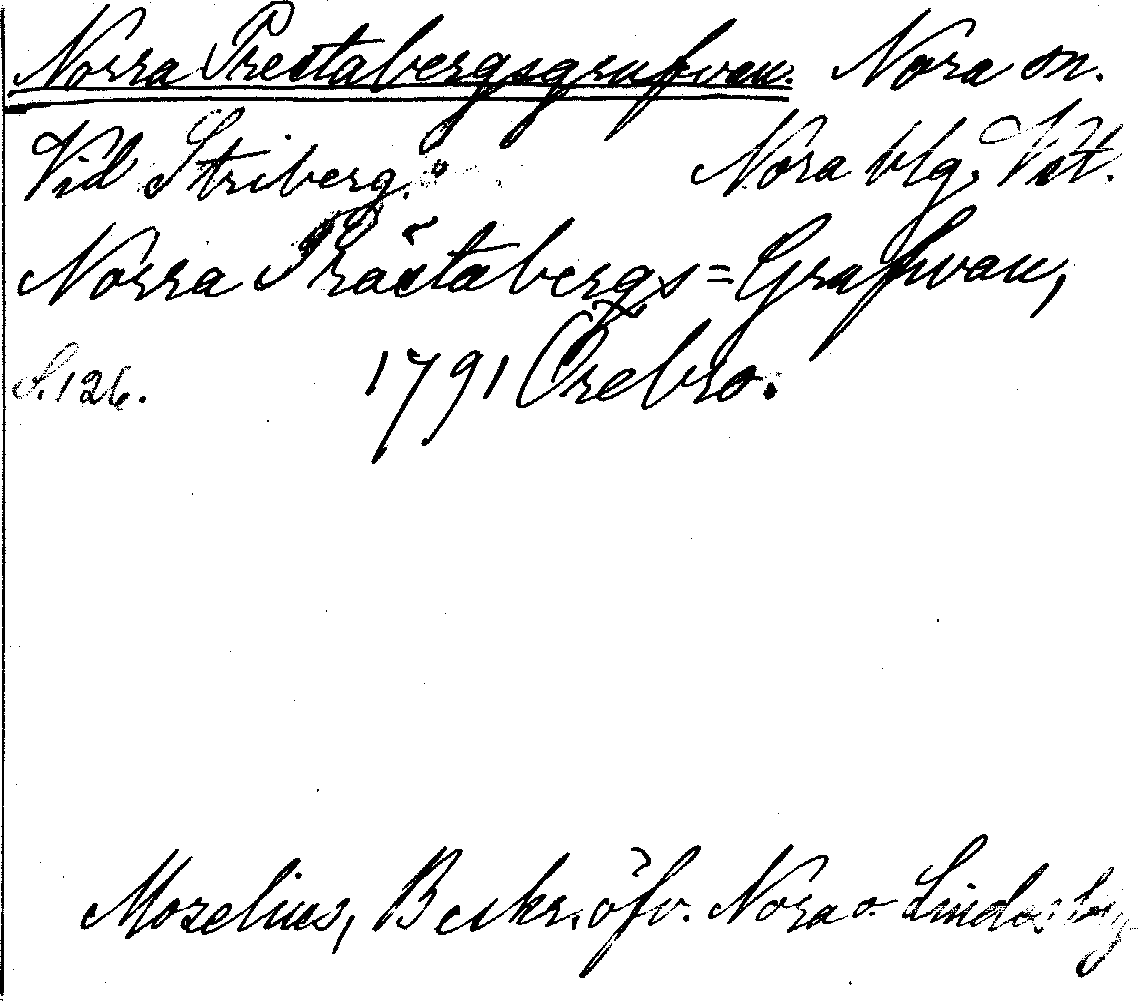 Norra Prestabergsgrufvan. Nora sn.
Vid Striberg. Nora blg. Vst.
Norra Prästabergs=Grufwan,
S. 126. 1791 Örebro.
Moselius, Beskr. öfv. Nora o. Lindesberg